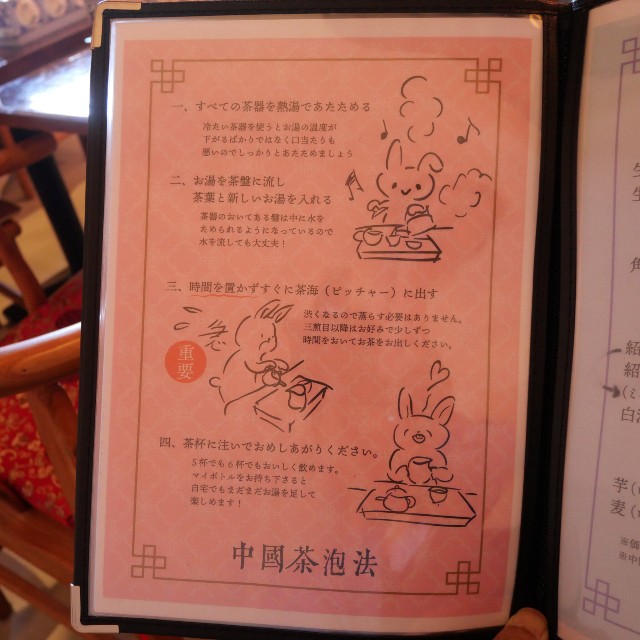 一、すべての茶器を熱湯であたためる
冷たい茶器を使うとお湯の温度が
下がるばかりではなく口当たりも
悪いのでしっかりとあたためましょう
二、お湯を茶盤に流し
茶葉と新しいお湯を入れる
茶器のおいてある盤は中に水を
ためられるようになっているので
水を流しても大丈夫！
三、時間を置かずすぐに茶海（ピッチャー）に出す
渋くなるので蒸らす必要はありません。
三煎目以降はお好みで少しずつ
時間をおいてお茶をお出しください。
急
重要
四、茶杯に注いでおめしあがりください。
５杯でも６杯でもおいしく飲めます。
マイボトルをお持ち下さると
自宅でもまだまだお湯を足して
楽しめます！
中國茶泡法
生
生
角
紹
紹
白
芋
麦